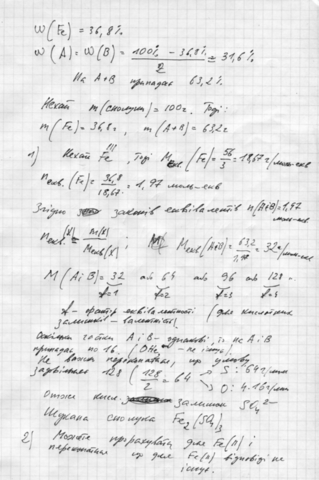 ω(Fe) = 36,8%
ω(A) = ω(B) = (100% - 36,8%)/2 = 31,6%
На A+B припадає 63,2%
Нехай m(сполуки) = 100г. Тоді:
m(Fe) = 36,8г, m(A+B) = 63,2г
1) Нехай Fe^III, тоді M екв.(Fe) = 56/3 = 18,67 г/моль-екв
n екв.(Fe) = 36,8/18,67 = 1,97 моль-екв
Згідно законів еквівалентів n(A+B) = 1,97 моль-екв
n екв.(X) = m(X)/M екв(X); M екв(A+B) = 63,2/1,98 = 32 г/моль-екв
M(A і B) = 32 або 64 або 96 або 128
f=1 f=2 f=3 f=4
f - фактор еквівалентності (для кислотних залишків - валентність)
Оскільки частки A і B - однакові, то на A і B
припадає по 16, OHe - не існує
Не важко переконатися, що умову
задовільняє 128 (128/2 = 64 S: 64 г/моль
O: 4·16 г/моль
Отже кисл. залишок SO4^2-
Шукана сполука Fe2(SO4)3
2) Можете прорахувати для Fe(II) і
переконатися що для Fe(II) відповіді не
існує.